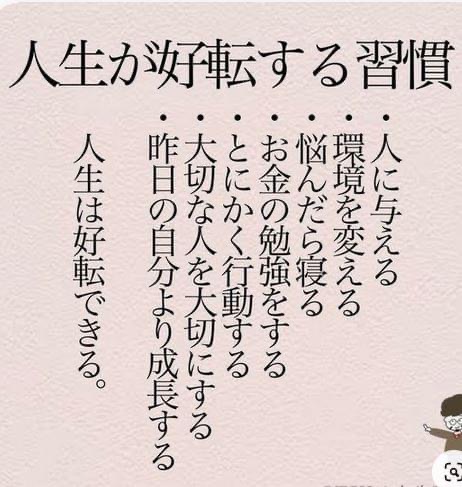 人生が好転する習慣
・人に与える
・環境を変える
・悩んだら寝る
・お金の勉強をする
・とにかく行動する
・大切な人を大切にする
・昨日の自分より成長する
人生は好転できる。